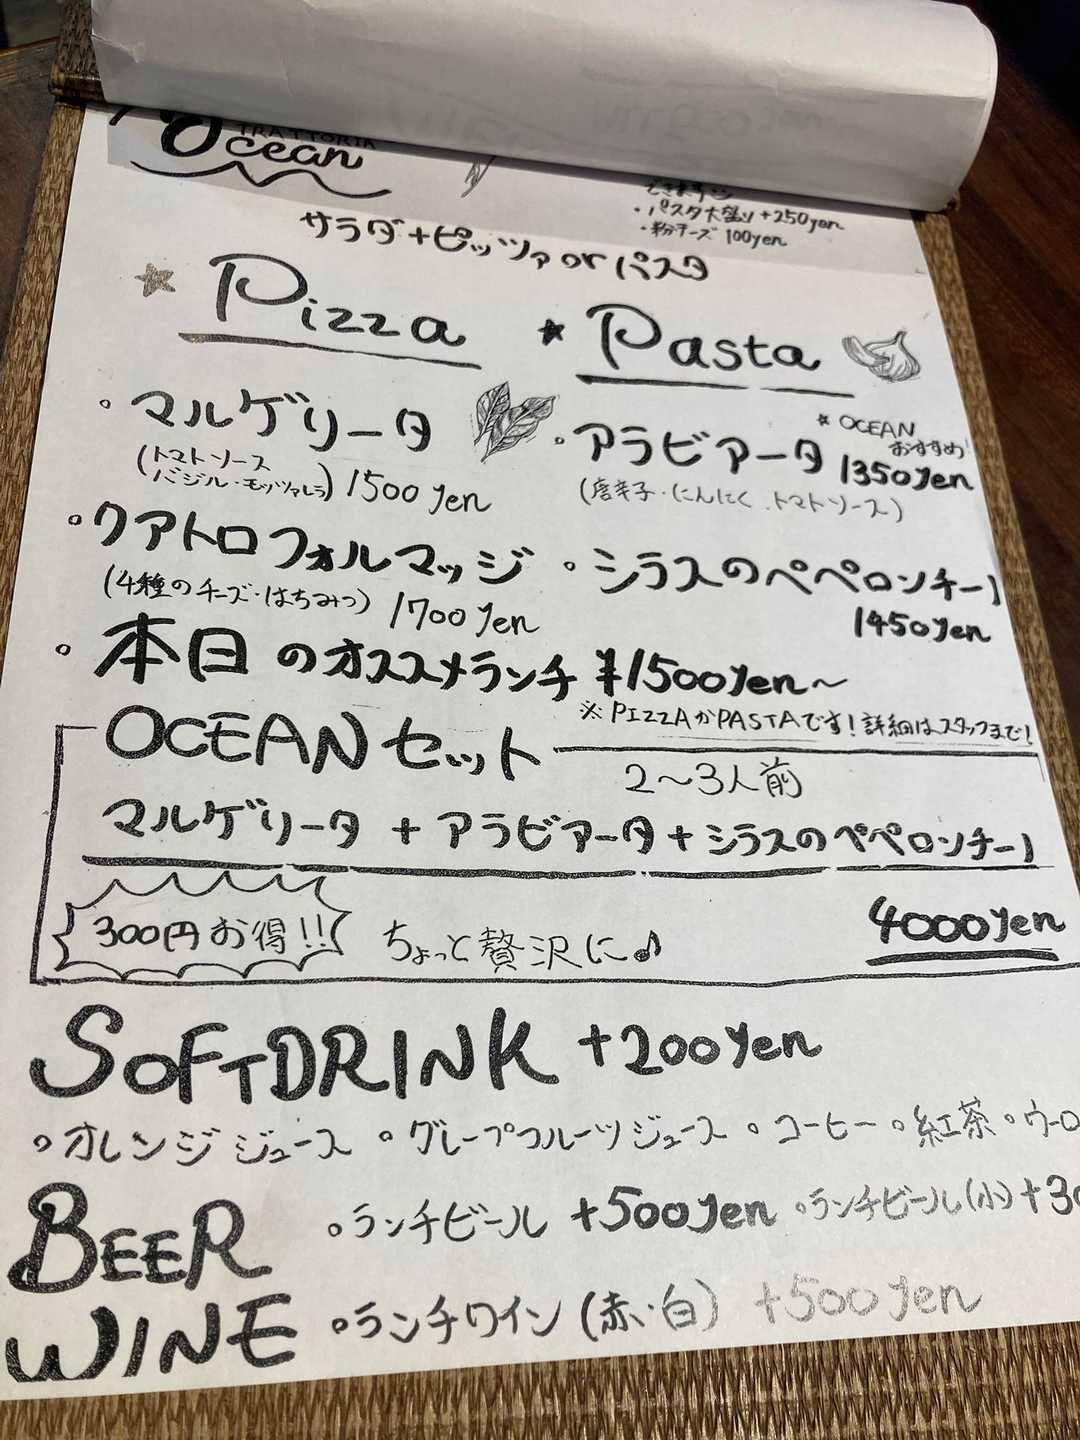 TRATTORIA
Ocean
できます
・パスタ大盛り+250yen
・粉チーズ 100yen
サラダ+ピッツァorパスタ
★Pizza
★Pasta
・マルゲリータ
(トマトソース
バジル・モッツァレラ) 1500yen
・アラビアータ
★OCEAN
おすすめ!
1350yen
(唐辛子・にんにく、トマトソース)
・クアトロフォルマッジ
(4種のチーズ・はちみつ) 1700yen
・シラスのペペロンチーノ
1450yen
・本日のオススメランチ ¥1500yen〜
※PIZZAかPASTAです!詳細はスタッフまで!
OCEANセット
2〜3人前
マルゲリータ + アラビアータ + シラスのペペロンチーノ
300円お得!!
ちょっと贅沢に♪
4000yen
SOFTDRINK +200yen
・オレンジジュース ・グレープフルーツジュース ・コーヒー ・紅茶 ・ウーロ
BEER
・ランチビール +500yen
・ランチビール(小) +30
WINE
・ランチワイン (赤・白) +500yen